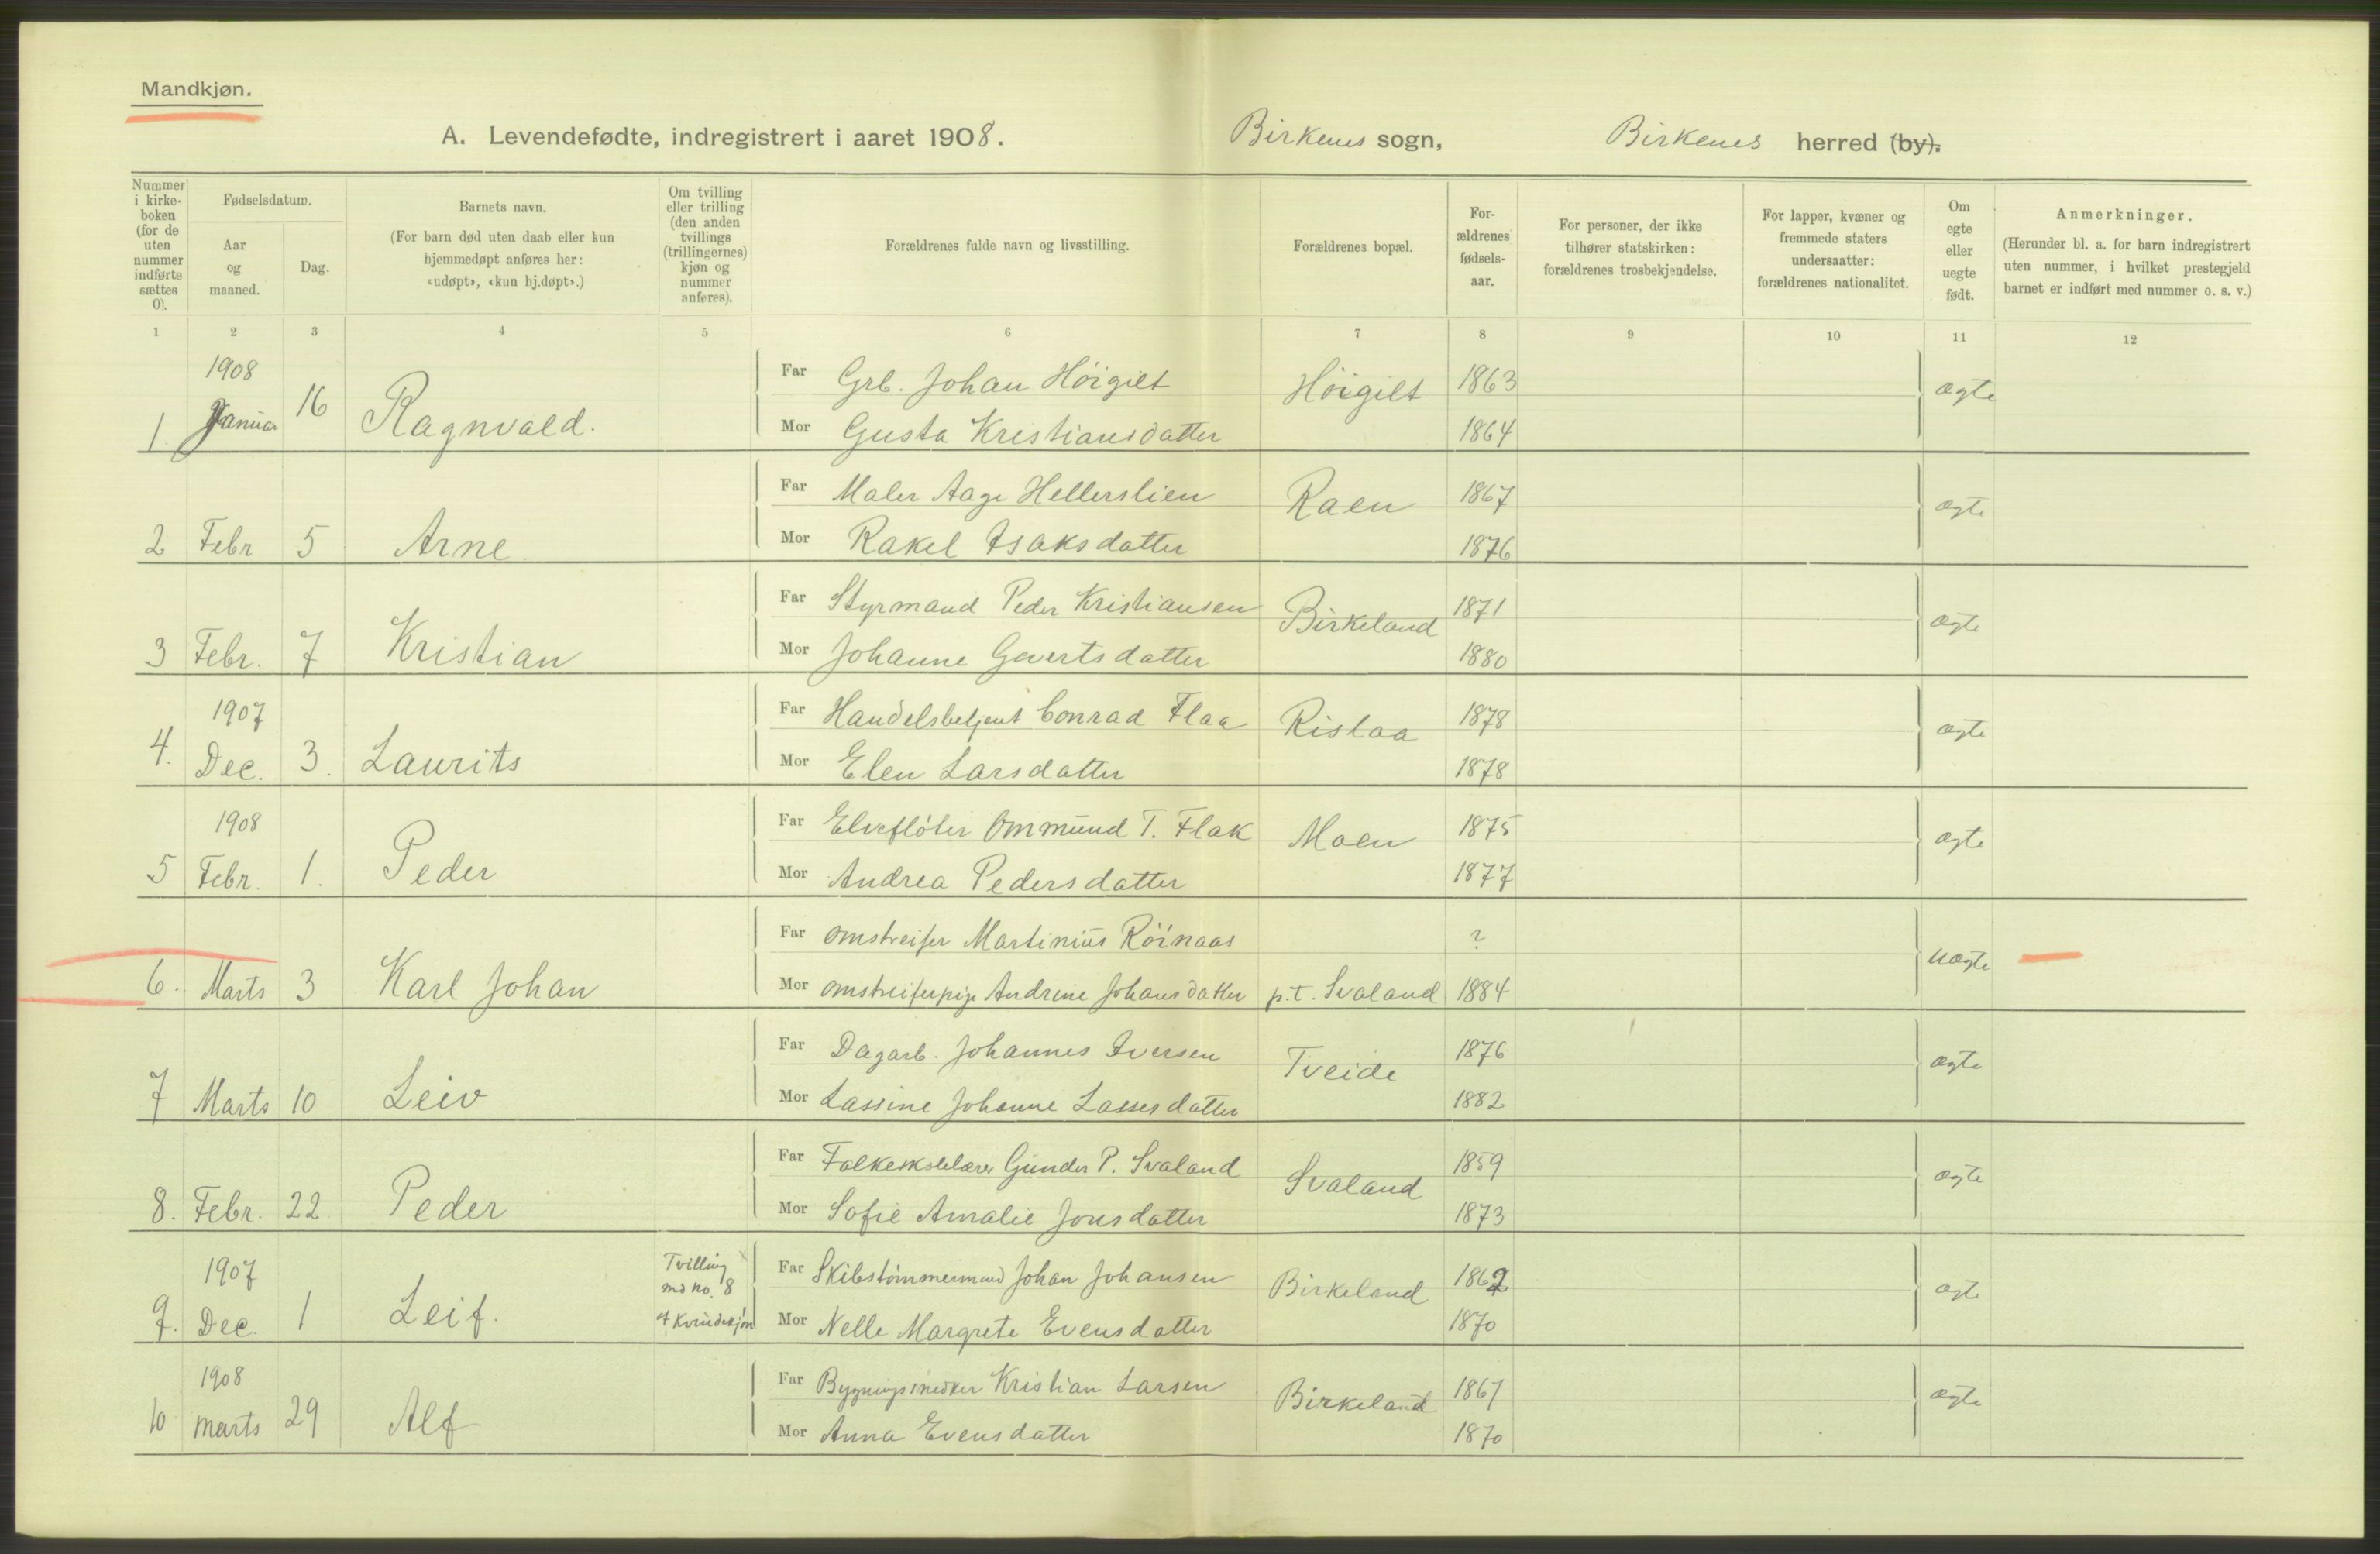 Mandkjøn.
A. Levendefødte, indregistrert i aaret 1908. Birkenes sogn, Birkenes herred (by).
Nummer i kirkeboken (for de uten nummer indførte sættes 0).
Fødselsdatum.
Aar og maaned.
Dag.
Barnets navn.
(For barn død uten daab eller kun hjemmedøpt anføres her: «udøpt», «kun hj.døpt».)
Om tvilling eller trilling (den anden tvillings (trillingernes) kjøn og nummer anføres).
Forældrenes fulde navn og livsstilling.
Forældrenes bopæl.
Forældrenes fødselsaar.
For personer, der ikke tilhører statskirken: forældrenes trosbekjendelse.
For lapper, kvæner og fremmede staters undersaatter: forældrenes nationalitet.
Om egte eller uegte født.
Anmerkninger.
(Herunder bl. a. for barn indregistrert uten nummer, i hvilket prestegjeld barnet er indført med nummer o. s. v.)
1 2 3 4 5 6 7 8 9 10 11 12
1. 1908 Januar 16 Ragnvald. Far Grb. Johan Höigilt Höigilt 1863 ægte
Mor Gusta Kristiansdatter 1864
2 Febr 5 Arne Far Maler Aage Hellerslien Raen 1867 ægte
Mor Rakel Isaksdatter 1876
3 Febr. 7 Kristian Far Styrmand Peder Kristiansen Birkeland 1871 ægte
Mor Johanne Gevertsdatter 1880
4. 1907 Dec. 3. Laurits Far Handelsbetjent Conrad Flaa Rislaa 1878 ægte
Mor Elen Larsdatter 1878
5 1908 Febr. 1. Peder Far Elvefløter Ommund T. Flak Moen 1875 ægte
Mor Andrea Pedersdatter 1877
6. Marts 3 Karl Johan Far omstreifer Martinius Röinaas ? uægte
Mor omstreiferpige Andrine Johansdatter p.t. Svaland 1884
7 Marts 10 Leiv Far Dagarb. Johannes Iversen Tveide 1876 ægte
Mor Lassine Johanne Lassesdatter 1882
8. Febr. 22 Peder Far Gunder P. Svaland Svaland 1859 ægte
Mor Sofie Amalie Jonsdatter 1873
9. 1907 Dec. 1 Leif. Tvilling md no. 8 af Kvindekjøn Far Skibstømmermand Johan Johansen Birkeland 1862 ægte
Mor Nelle Margrete Evensdatter 1870
10 1908 Marts 29 Alf Far Bygningssnedker Kristian Larsen Birkeland 1867 ægte
Mor Anna Evensdatter 1870